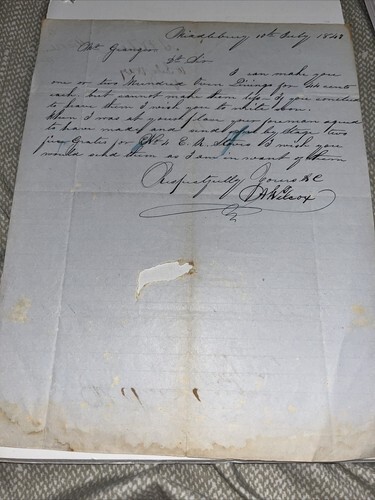 Middlebury 10th July 1848
Mr Granger
Dr Sir
I can make you
one or two Hundred Oven Linings for 44 cents
cash but cannot make them for less if you conclud
to have them I wish you to write soon.
When I was at your place your foreman agreed
to have made and send by Stage two
fire Grates for No 4 E. A. Stoves I wish you
would send them as I am in want of them
Respectfully Yours &C
Wilcox